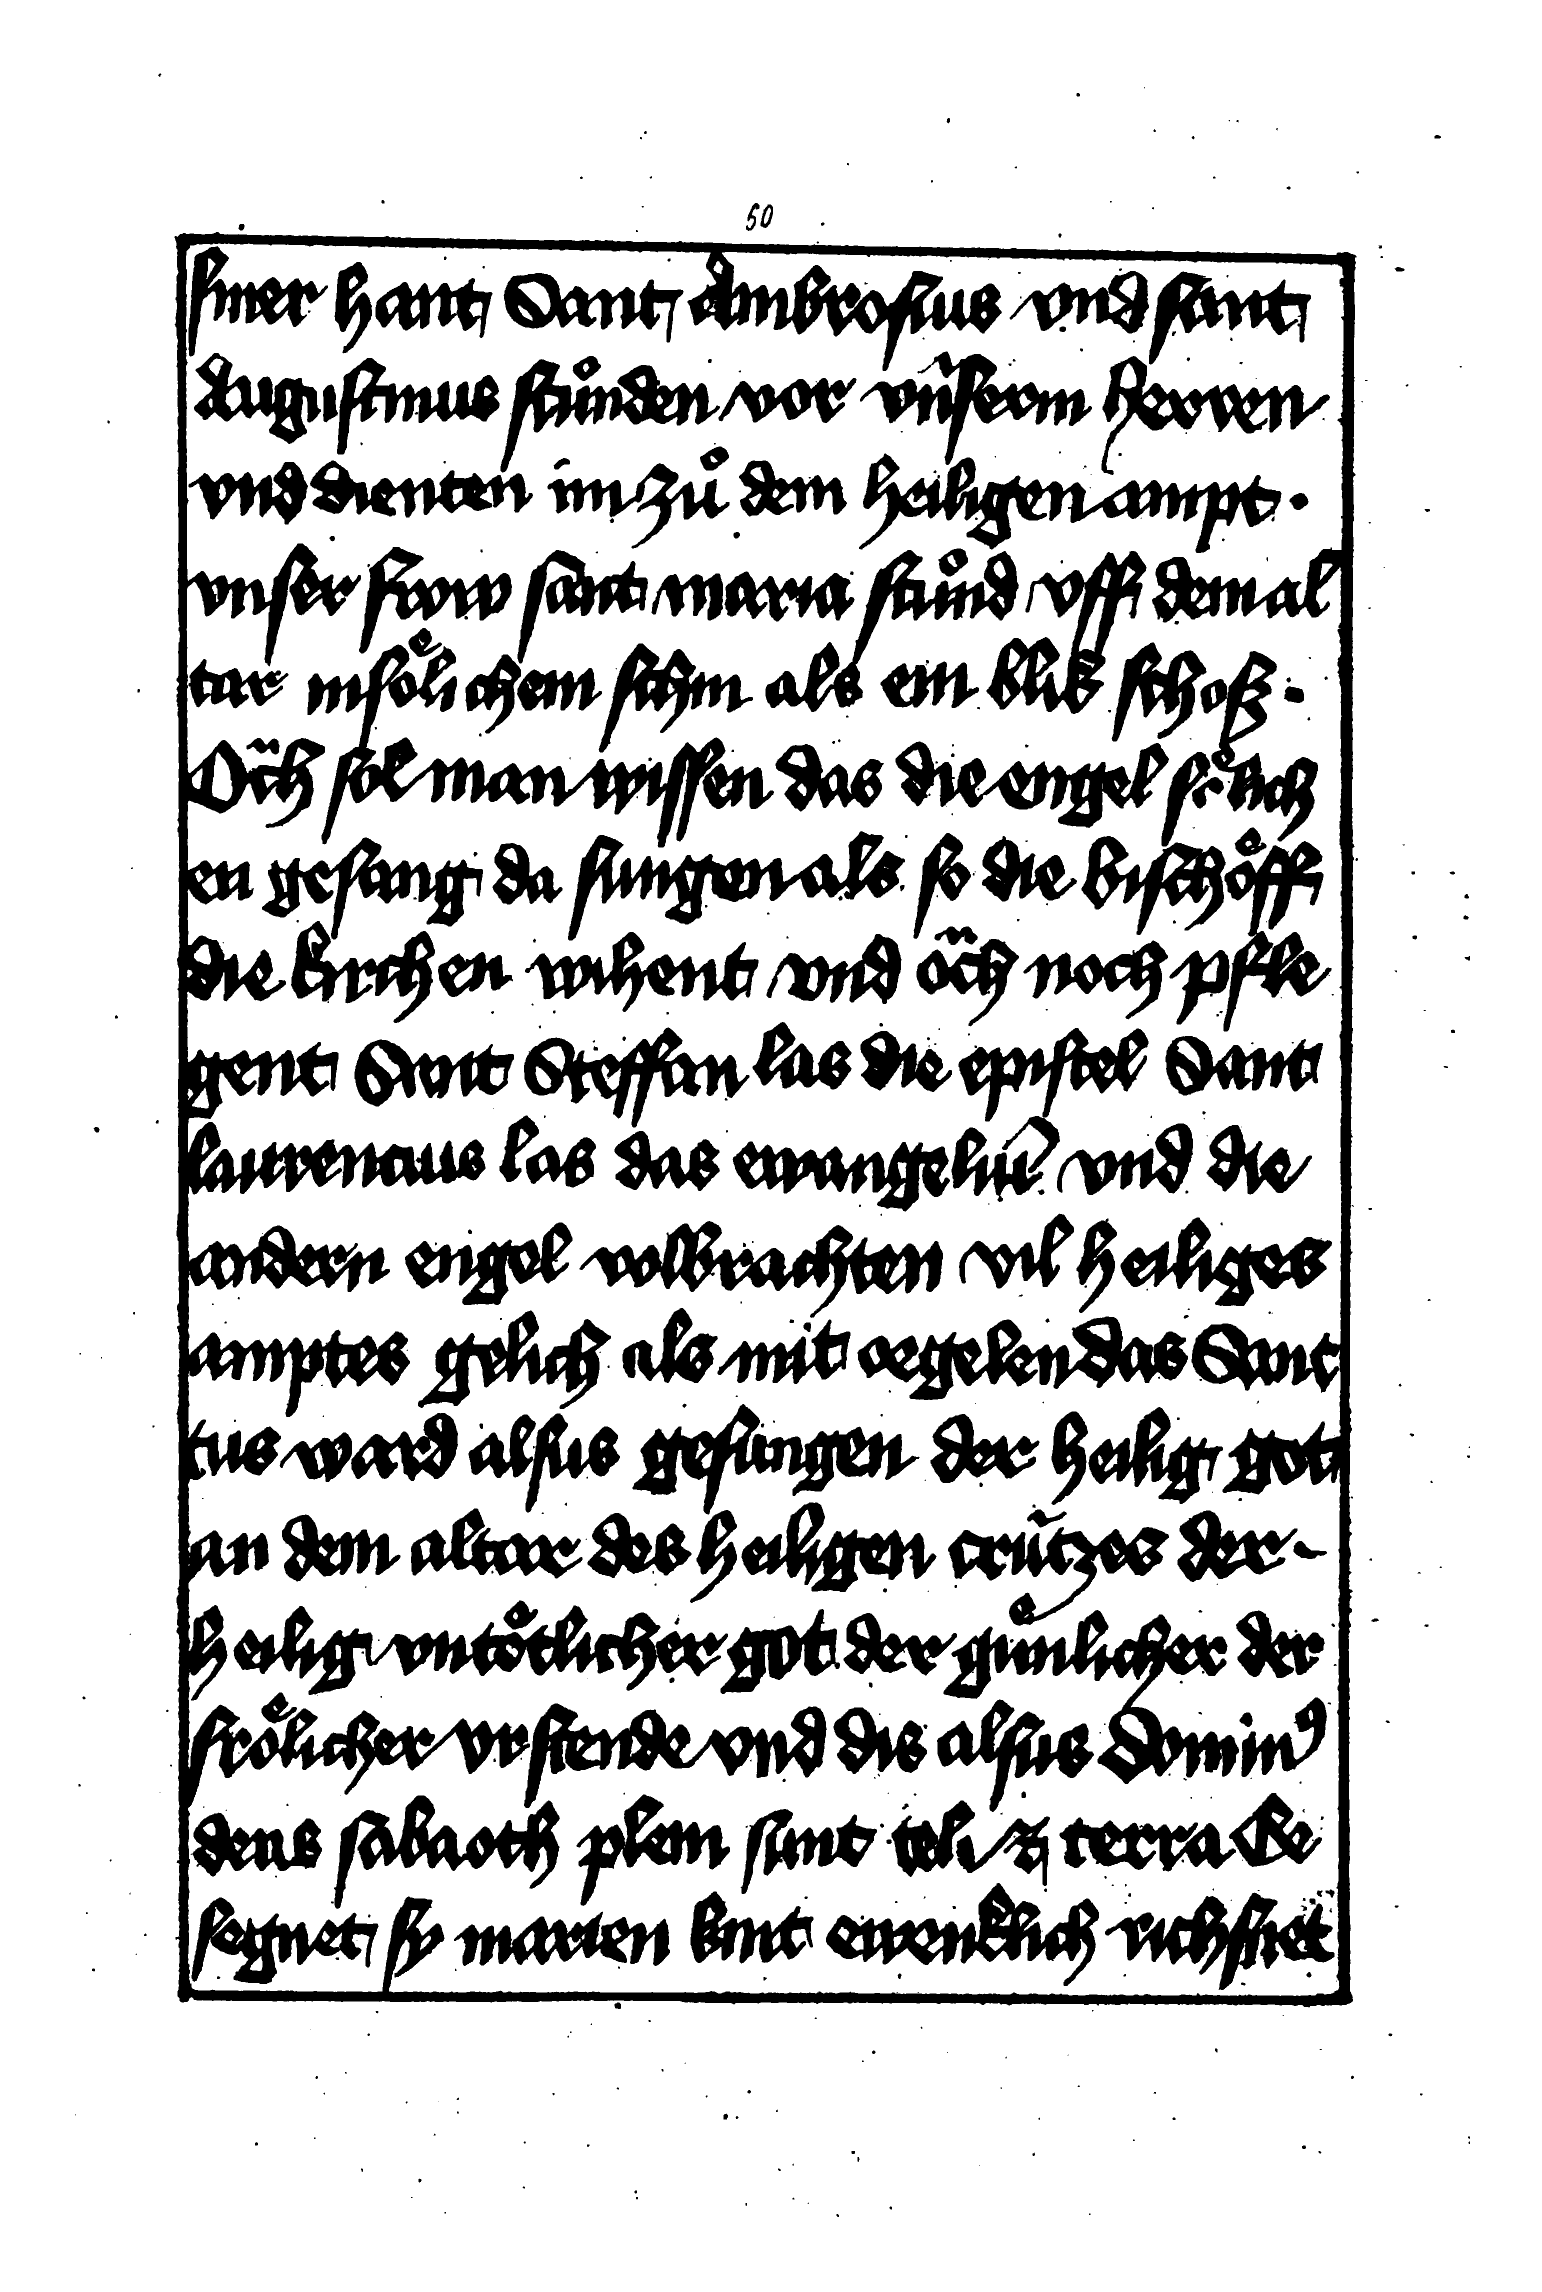 50
siner hant Sant Ambrosius vnd sant
Augustinus stůnden vor vnserm herren
vnd dienten im zů dem heiligen ampt ·
vnser frow sant maria stůnd vff dem al
tar in soͤlichem schin als ein blik schoß ·
Oͮch sol man wissen das die engel froͤlich
en gesang da sungen als so die bischoͤff
die kirchen wihent vnd oͮch noch pfle
gent Sant Steffan las die epistel Sant
laurencius las das ewangeliū vnd die
andern engel volbrachten vil heiliges
amptes gelich als mit orgelen das Sanc
tus ward alsus gesungen der heilig got
an dem altar des heiligen crútzes der
heilig vntoͤtlicher got der guͤnlicher der
froͤlicher vrstende vnd dis alsus Dominꝰ
deus sabaoth pleni sunt celi ⁊ terra Ge
segnet sy marien kint ewenklich richsnet